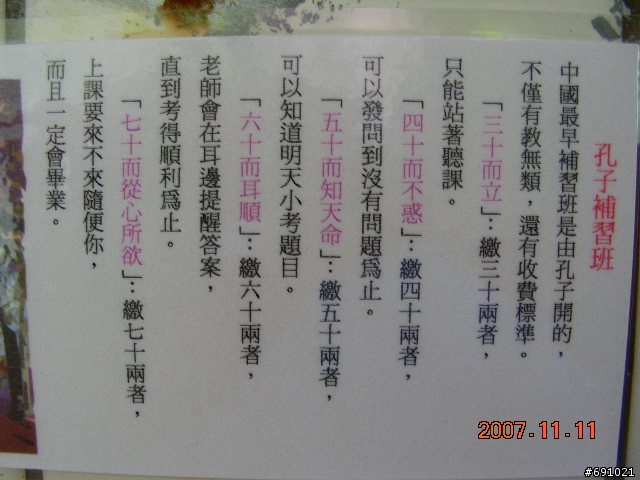 孔子補習班
中國最早補習班是由孔子開的，
不僅有教無類，還有收費標準。
「三十而立」：繳三十兩者，
只能站著聽課。
「四十而不惑」：繳四十兩者，
可以發問到沒有問題為止。
「五十而知天命」：繳五十兩者，
可以知道明天小考題目。
「六十而耳順」：繳六十兩者，
老師會在耳邊提醒答案，
直到考得順利為止。
「七十而從心所欲」：繳七十兩者，
上課要來不來隨便你，
而且一定會畢業。
2007.11.11
#691021